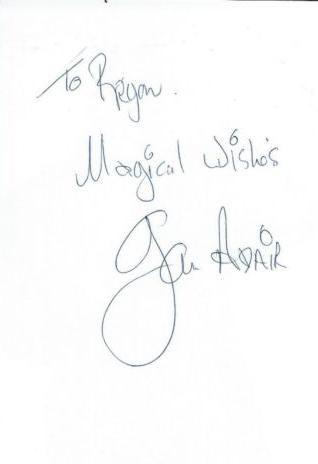 To Bryan.
Magical Wishes
Ian ADAIR